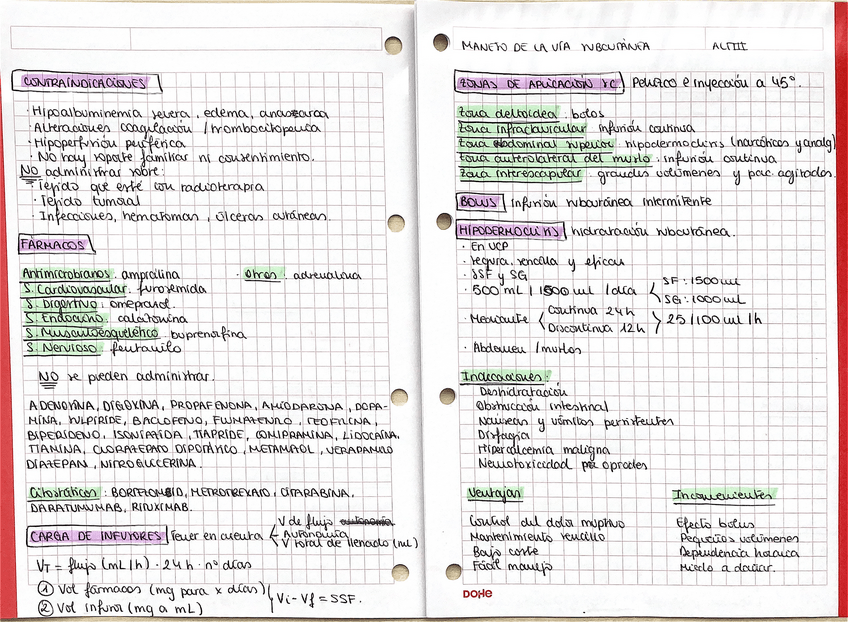 CONTRAINDICACIONES
· Hipoalbuminemia severa, edema, anasarca
· Alteraciones coagulación / trombocitopenia
· Hipoperfusión periférica
· No hay soporte familiar ni consentimiento.
NO administrar sobre:
· Tejido que esté con radioterapia
· Tejido tumoral
· Infecciones, hematomas, úlceras cutáneas.
FÁRMACOS
Antimicrobianos: ampicilina · Otros: adrenalina
S. Cardiovascular: furosemida
S. Digestivo: omeprazol.
S. Endocrino: calcitonina
S. Musculoesquelético: buprenorfina
S. Nervioso: fentanilo
NO se pueden administrar.
ADENOSINA, DIGOXINA, PROPAFENONA, AMIODARONA, DOPA-
MINA, SULPIRIDE, BACLOFENO, FLUMAZENILO, TEOFILINA,
BIPERIDENO, ISONIAZIDA, TIAPRIDE, CLOMIPRAMINA, LIDOCAÍNA,
TIAMINA, CLORAZEPATO DIPOTÁSICO, METAMIZOL, VERAPAMILO
DIAZEPAN, NITROGLICERINA.
Citostáticos: BORTEZOMID, METROTREXATO, CITARABINA,
DARATUMUMAB, RITUXIMAB.
CARGA DE INFUSORES Tener en cuenta
V de flujo
Autonomía
V total de llenado (mL)
VT = flujo (mL/h) · 24h · nº días
① Vol fármacos (mg para x días)
② Vol infusor (mg a mL)
Vi - Vf = SSF.
MANEJO DE LA VÍA SUBCUTÁNEA
ZONAS DE APLICACIÓN SC. Pellizco e inyección a 45°.
Zona deltoidea: bolos
Zona infraclavicular: infusión continua
Zona abdominal superior: hipodermoclisis (narcóticos y analg)
Zona anterolateral del muslo: infusión continua
Zona interescapular: grandes volúmenes y pac. agitados.
BOLUS Infusión subcutánea intermitente
HIPODERMOCLISIS hidratación subcutánea.
· En UCP
· Segura, sencilla y eficaz
· SSF y SG
· 500 mL / 1500 mL / día
SF: 1500 mL
SG: 1000 mL
· Mediante
Continua 24h
Discontinua 12h
25/100 mL/h
· Abdomen / muslos
Indicaciones:
Deshidratación
Obstrucción intestinal
Náuseas y vómitos persistentes
Disfagia
Hipercalcemia maligna
Neurotoxicidad por opiodes
Ventajas Inconvenientes
Control del dolor disruptivo Efecto bolus
Mantenimiento sencillo Pequeños volúmenes
Bajo coste Dependencia horaria
Fácil manejo Miedo a dañar.
DOHE